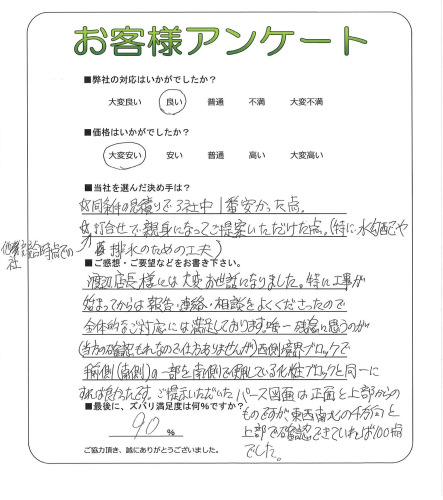 お客様アンケート
■弊社の対応はいかがでしたか?
大変良い 良い 普通 不満 大変不満
■価格はいかがでしたか?
大変安い 安い 普通 高い 大変高い
■当社を選んだ決め手は?
☆同条件の見積りで3社中1番安かった点。
☆打合せで親身になってご提案いただけた点。(特に水勾配や
排水のための工夫)
■ご感想・ご要望などをお書き下さい。
渡辺店長様には大変お世話になりました。特に工事が
始まってからは報告・連絡・相談をよくくださったので
全体的なご対応には満足しております。唯一残念に思うのが
(当方の確認もれなので仕方ありませんが)西側境界ブロックで
南側の一部を南側で使している化粧ブロックと同一に
すれば良かったです。ご提示いただいたパース図面は正面と上部からの
ものですが、東西南北の4方向と
上部で確認できていれば100点
でした。
■最後に、ズバリ満足度は何%ですか?
90 %
ご協力頂き、誠にありがとうございました。